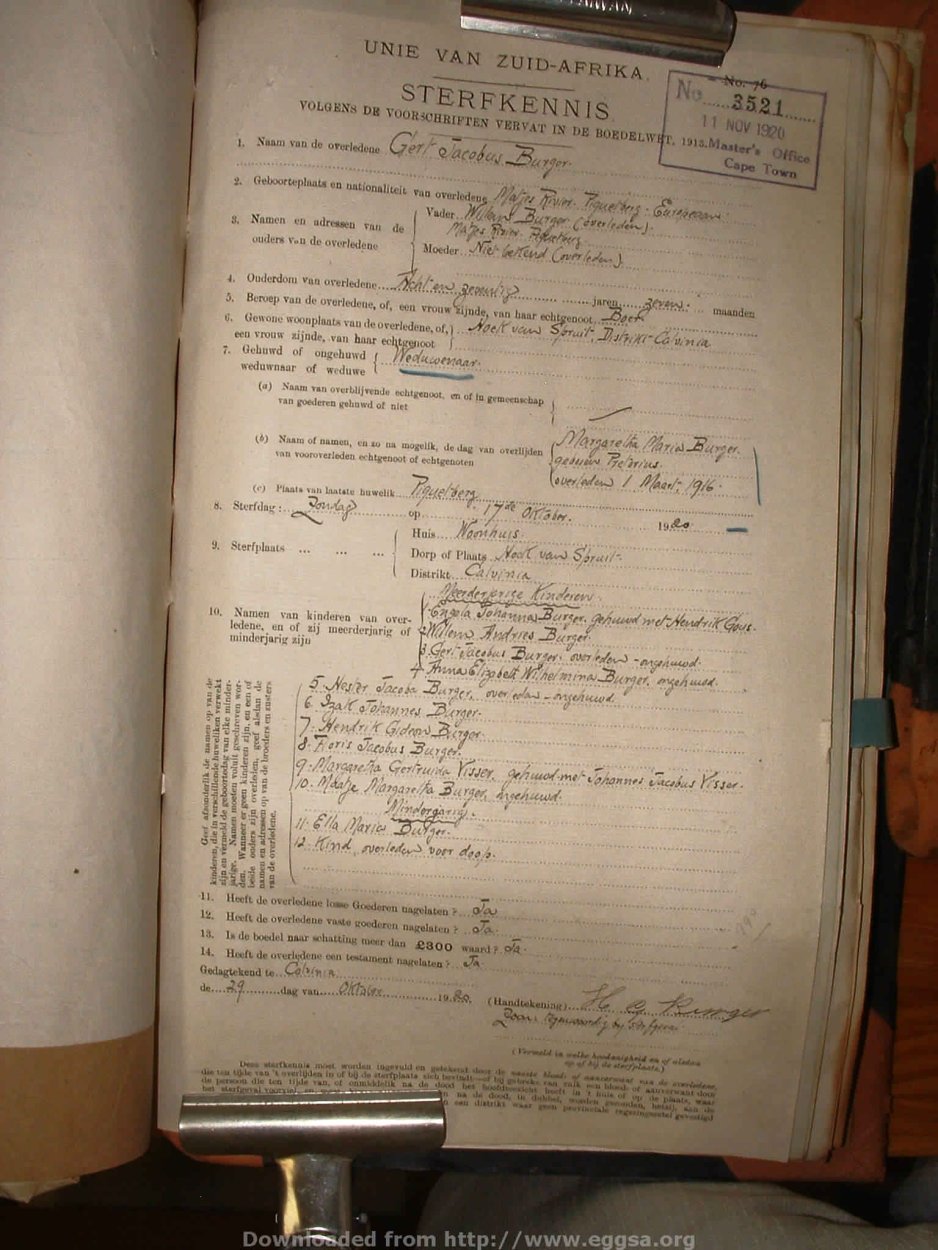 TAIWAN
UNIE VAN ZUID-AFRIKA.
No. 76
STERFKENNIS
No 3521
11 NOV 1920
Master's Office
Cape Town
VOLGENS DE VOORSCHRIFTEN VERVAT IN DE BOEDELWET, 1913.
1. Naam van de overledene Gert Jacobus Burger
2. Geboorteplaats en nationaliteit van overledene Matjes Rivier Piquetberg - Europeaan
3. Namen en adressen van de ouders van de overledene
Vader Willem Burger (overleden)
Matjes Rivier Piquetberg
Moeder Niet bekend (overleden)
4. Ouderdom van overledene Acht en zeventig jaren zeven maanden
5. Beroep van de overledene, of, een vrouw zijnde, van haar echtgenoot Boer
6. Gewone woonplaats van de overledene, of, een vrouw zijnde, van haar echtgenoot Hoek van Spruit, Distrikt Calvinia
7. Gehuwd of ongehuwd weduwnaar of weduwe Weduwenaar
(a) Naam van overblijvende echtgenoot, en of in gemeenschap van goederen gehuwd of niet
(b) Naam of namen, en zo na mogelik, de dag van overlijden van vooroverleden echtgenoot of echtgenoten
Margaretha Maria Burger
geboren Pretorius
overleden 1 Maart 1916
(c) Plaats van laatste huwelik Piquetberg
8. Sterfdag: Zondag op 17de Oktober 1920
9. Sterfplaats ... ... ...
Huis Woonhuis
Dorp of Plaats Hoek van Spruit
Distrikt Calvinia
Meerderjerige Kinderen
10. Namen van kinderen van overledene, en of zij meerderjarig of minderjarig zijn
1 Engela Johanna Burger, gehuwd met Hendrik Gous.
2 Willem Andries Burger.
3 Gert Jacobus Burger, overleden - ongehuwd.
4 Anna Elizabeth Wilhelmina Burger, ongehuwd.
5. Hester Jacoba Burger, overleden - ongehuwd.
6. Izak Johannes Burger.
7. Hendrik Gideon Burger
8. Floris Jacobus Burger.
9. Margaretha Gertruida Visser, gehuwd met Johannes Jacobus Visser.
10. Maatje Margaretha Burger, ongehuwd.
Mindergarig.
11. Ella Maria Burger.
12. Kind, overleden voor doop.
Geef afzonderlik de namen op van de
kinderen, die in verschillende huweliken verwekt
zijn en vermeld de geboortedag van elke minder-
jarige. Namen moeten voluit geschreven wor-
den. Wanneer er geen kinderen zijn, en een of
beide ouders zijn overleden, geef alsdan de
namen en adressen op van de broeders en zusters
van de overledene.
11. Heeft de overledene losse Goederen nagelaten? Ja
12. Heeft de overledene vaste goederen nagelaten? Ja
13. Is de boedel naar schatting meer dan £300 waard? Ja
14. Heeft de overledene een testament nagelaten? Ja
Gedagtekend te Calvinia
de 29 dag van Oktober 1920.
(Handtekening) H G Burger
Zoon: tegenwoordig by sterfgeval
(Vermeld in welke hoedanigheid en of alsdan
op of bij de sterfplaats.)
Deze sterfkennis moet worden ingevuld en getekend door de naaste bloed- of aanverwant van de overledene,
die ten tijde van 't overlijden in of bij de sterfplaats zich bevindt—of bij gebreke van zulk een bloed- of aanverwant door
de persoon die ten tijde van, of onmiddelik na de dood het hoofdtoezicht heeft in 't huis of op de plaats, waar
het sterfgeval voorviel,
na de dood, in dubbel, worden gezonden, hetzij, aan de
een distrikt waar geen provinciale regeringszetel gevestigd
Downloaded from http://www.eggsa.org